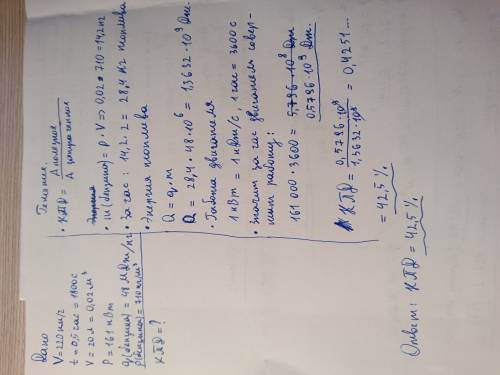 Дано
V=220 км/г
t = 0,5 час = 1800 с
V = 20 л = 0,02 м³
P = 161 кВт
q(бензина) = 48 МДж/кг
ρ(бензина) = 710 кг/м³
КПД = ?
Решение.
• КПД = A полезное / A затраченное
• m(бензина) = ρ · V => 0,02 · 710 = 14,2 кг
• За час : 14,2 · 2 = 28,4 кг топлива
• Энергия топлива
Q = q · m
Q = 28,4 · 48 · 10⁶ = 1,3632 · 10⁹ Дж.
• Работа двигателя
1 кВт = 1 кДж/с, 1 час = 3600 с
• Значит за час двигатель совер-
шит работу:
161 000 · 3600 = 5,796 · 10⁸ Дж
0,5796 · 10⁹ Дж.
КПД = 0,5796 · 10⁹ / 1,3632 · 10⁹ = 0,4251...
= 42,5 %
Ответ: КПД = 42,5 %